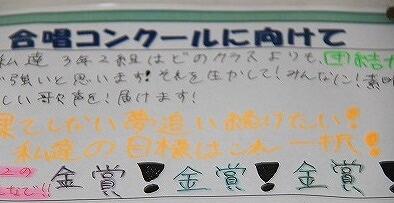 合唱コンクールに向けて
私達 3年2組はどのクラスよりも、団結力
強いと思います! それを生かして! みんなに! 素晴
しい歌声を! 届けます!
果てしない夢追い続けたい!
私達の目標はこれ一択!
金賞! 金賞! 金賞!